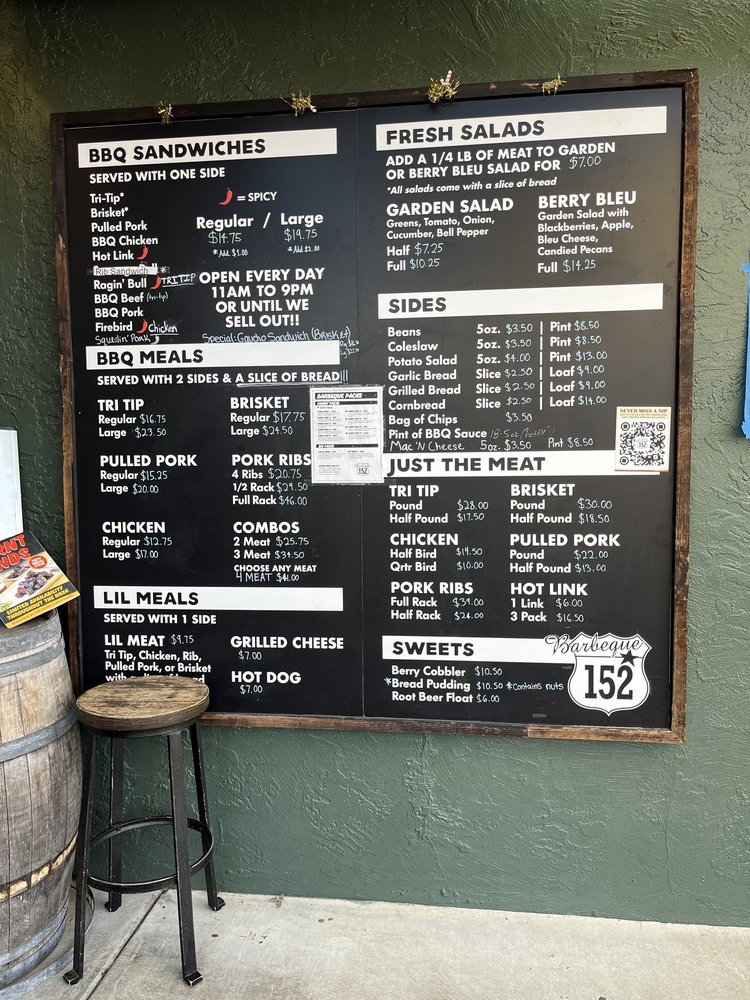 BBQ SANDWICHES
SERVED WITH ONE SIDE
Tri-Tip*
Brisket*
Pulled Pork
BBQ Chicken
Hot Link
Rib Sandwich *
Ragin' Bull TRITIP
BBQ Beef (tri-tip)
BBQ Pork
Firebird Chicken
Squealin' Pork
= SPICY
Regular / Large
$14.75 $19.75
*Add $1.00 *Add $2.00
OPEN EVERY DAY
11AM TO 9PM
OR UNTIL WE
SELL OUT!!
Special: Gaucho Sandwich (Brisket)
BBQ MEALS
SERVED WITH 2 SIDES & A SLICE OF BREAD
TRI TIP
Regular $16.75
Large $23.50
BRISKET
Regular $17.75
Large $24.50
PULLED PORK
Regular $15.25
Large $20.00
PORK RIBS
4 Ribs $20.75
1/2 Rack $29.50
Full Rack $46.00
CHICKEN
Regular $12.75
Large $17.00
COMBOS
2 Meat $25.75
3 Meat $34.50
CHOOSE ANY MEAT
4 MEAT $41.00
LIL MEALS
SERVED WITH 1 SIDE
LIL MEAT $9.75
Tri Tip, Chicken, Rib,
Pulled Pork, or Brisket
GRILLED CHEESE
$7.00
HOT DOG
$7.00
BARBEQUE PACKS
FRESH SALADS
ADD A 1/4 LB OF MEAT TO GARDEN
OR BERRY BLEU SALAD FOR $7.00
*All salads come with a slice of bread
GARDEN SALAD
Greens, Tomato, Onion,
Cucumber, Bell Pepper
Half $7.25
Full $10.25
BERRY BLEU
Garden Salad with
Blackberries, Apple,
Bleu Cheese,
Candied Pecans
Full $14.25
SIDES
Beans 5oz. $3.50 | Pint $8.50
Coleslaw 5oz. $3.50 | Pint $8.50
Potato Salad 5oz. $4.00 | Pint $13.00
Garlic Bread Slice $2.50 | Loaf $9.00
Grilled Bread Slice $2.50 | Loaf $9.00
Cornbread Slice $2.50 | Loaf $14.00
Bag of Chips $3.50
Pint of BBQ Sauce 18.5oz/bottle
Mac 'N Cheese 5oz. $3.50 Pint $8.50
NEVER MISS A SIP
JUST THE MEAT
TRI TIP
Pound $28.00
Half Pound $17.50
BRISKET
Pound $30.00
Half Pound $18.50
CHICKEN
Half Bird $14.50
Qrtr Bird $10.00
PULLED PORK
Pound $22.00
Half Pound $13.00
PORK RIBS
Full Rack $39.00
Half Rack $24.00
HOT LINK
1 Link $6.00
3 Pack $16.50
SWEETS
Berry Cobbler $10.50
*Bread Pudding $10.50 *Contains nuts
Root Beer Float $6.00
Barbeque
152
LIMITED AVAILABILITY
THROUGHOUT THE WEEK